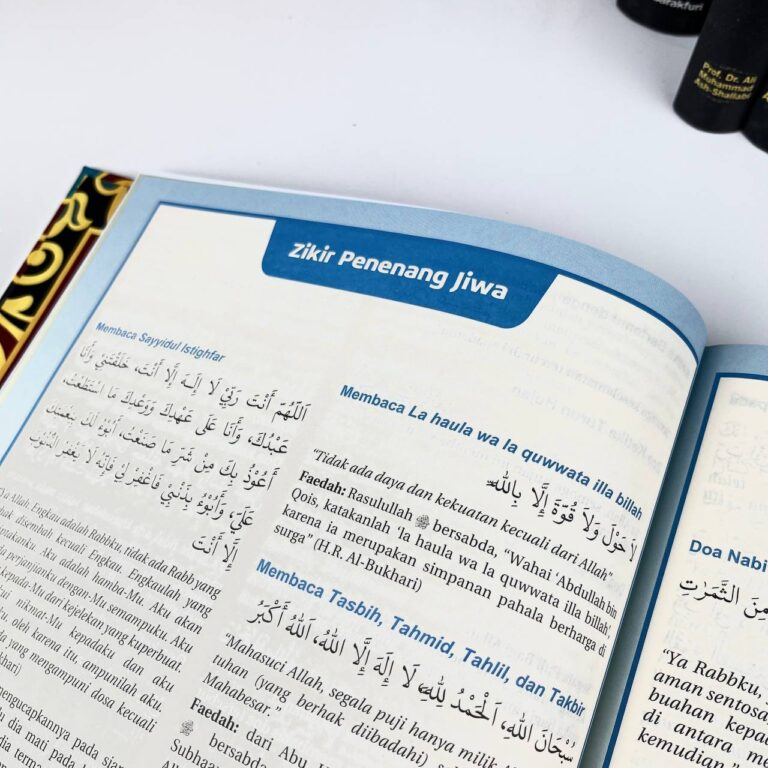 arakfuri
Prof. Dr. Ali
Muhammad
Ash-Shallabi
Zikir Penenang Jiwa
Membaca Sayyidul Istighfar
اَللّٰهُمَّ أَنْتَ رَبِّيْ لَا إِلٰـهَ إِلَّا أَنْتَ، خَلَقْتَنِيْ وَأَنَا
عَبْدُكَ، وَأَنَا عَلَى عَهْدِكَ وَوَعْدِكَ مَا اسْتَطَعْتُ،
أَعُوْذُ بِكَ مِنْ شَرِّ مَا صَنَعْتُ، أَبُوْءُ لَكَ بِنِعْمَتِكَ
عَلَيَّ، وَأَبُوْءُ بِذَنْبِيْ فَاغْفِرْ لِيْ فَإِنَّهُ لَا يَغْفِرُ الذُّنُوْبَ
إِلَّا أَنْتَ
"Ya Allah, Engkau adalah Rabbku, tidak ada Rabb yang
hak disembah kecuali Engkau. Engkaulah yang
Aku adalah hamba-Mu. Aku akan
perjanjianku dengan-Mu semampuku. Aku
kepada-Mu dari kejelekan yang kuperbuat.
nikmat-Mu kepadaku dan aku
oleh karena itu, ampunilah aku.
yang mengampuni dosa kecuali
mengucapkannya pada sian
dia mati pada
Membaca La haula wa la quwwata illa billah
لَا حَوْلَ وَلَا قُوَّةَ إِلَّا بِاللهِ
"Tidak ada daya dan kekuatan kecuali dari Allah"
Faedah: Rasulullah ﷺ bersabda, "Wahai 'Abdullah bin
Qois, katakanlah 'la haula wa la quwwata illa billah',
karena ia merupakan simpanan pahala berharga di
surga" (H.R. Al-Bukhari)
Membaca Tasbih, Tahmid, Tahlil, dan Takbir
سُبْحَانَ اللهِ، اَلْحَمْدُ لِلهِ، لَا إِلَهَ إِلَّا اللهُ، اَللهُ أَكْبَرُ
"Mahasuci Allah, segala puji hanya milik
tuhan (yang berhak diibadahi)
Mahabesar."
Faedah: dari Abu
ﷺ bersabda
Subhaa
Doa Nabi
مِنَ الثَّمَرٰتِ
"Ya Rabbku,
aman sentosa
buahan kepa
di antara me
kemudian."